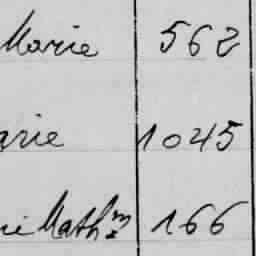 Marie 562
arie 1045
ie Math 166